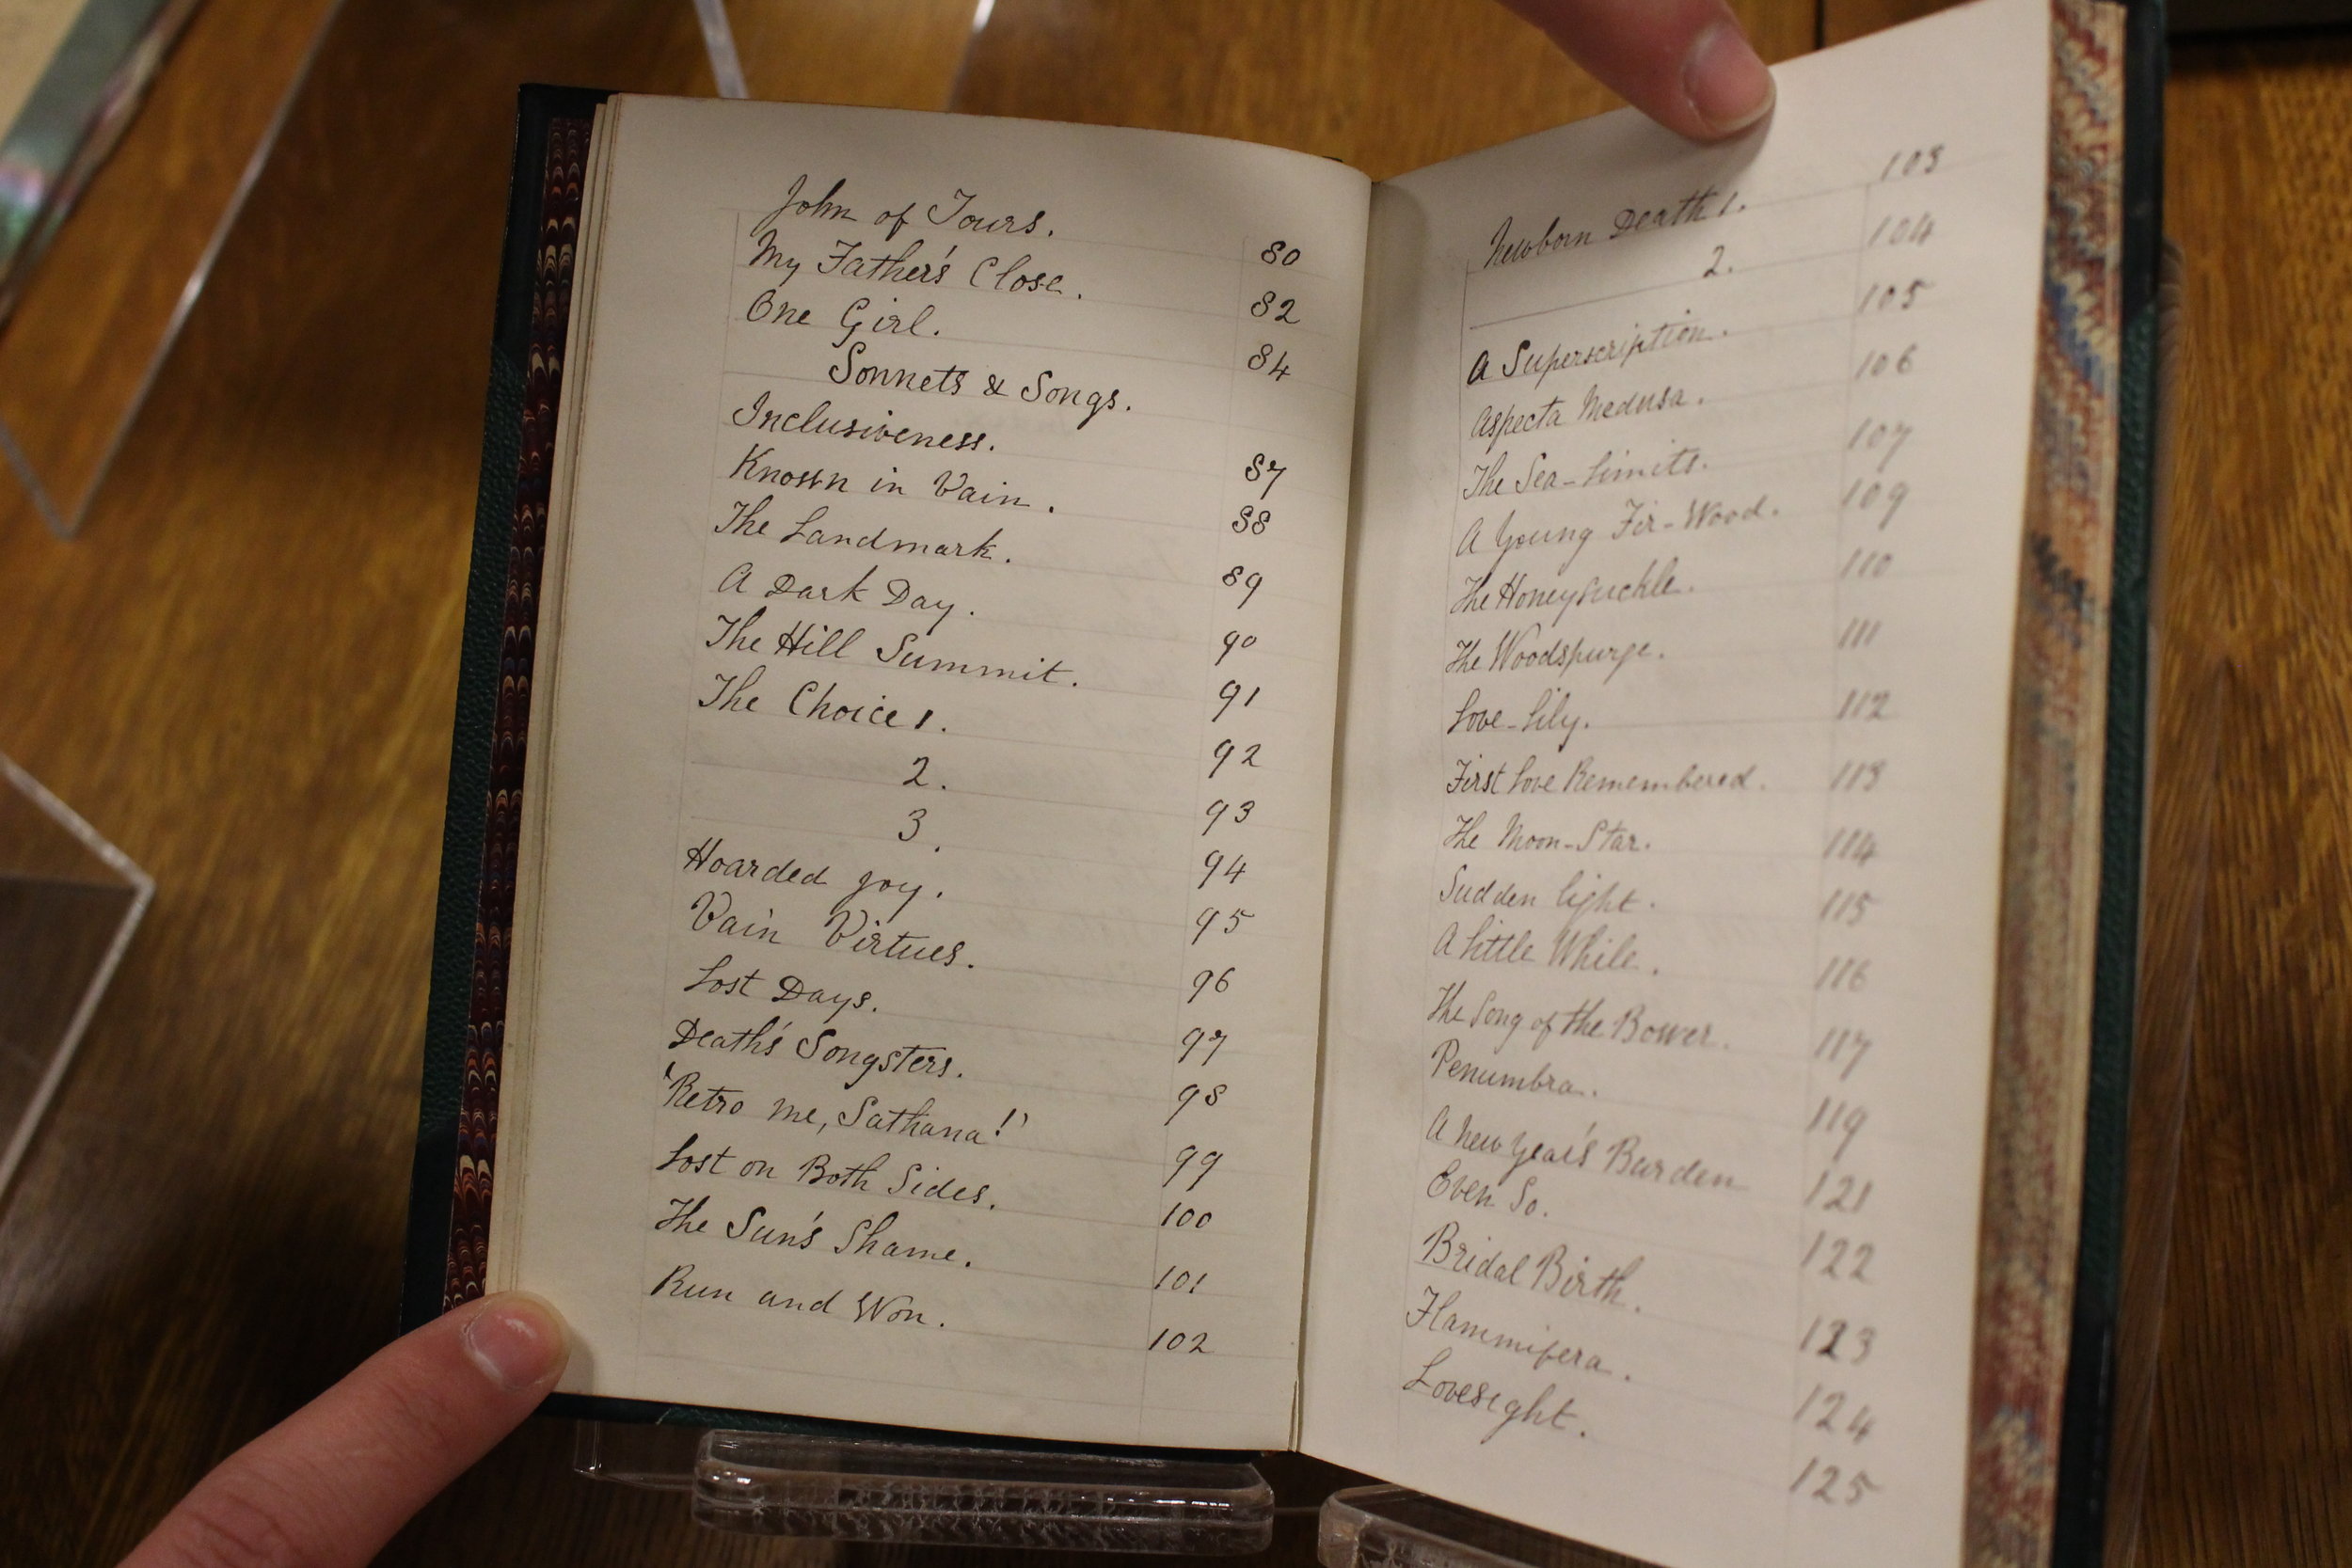 John of Tours. 80
My Father's Close. 82
One Girl. 84
Sonnets & Songs.
Inclusiveness. 87
Known in Vain. 88
The Landmark. 89
A Dark Day. 90
The Hill Summit. 91
The Choice 1. 92
2. 93
3. 94
Hoarded joy. 95
Vain Virtues. 96
Lost Days. 97
Death's Songsters. 98
'Retro me, Sathana!' 99
Lost on Both Sides. 100
The Sun's Shame. 101
Run and Won. 102
Newborn Death 1. 103
2. 104
A Superscription. 105
Aspecta Medusa. 106
The Sea-Limits. 107
A Young Fir-Wood. 109
The Honeysuckle. 110
The Woodspurge. 111
Love-Lily. 112
First Love Remembered. 113
The Moon-Star. 114
Sudden light. 115
A Little While. 116
The Song of the Bower. 117
Penumbra. 119
A New Year's Burden 121
Even So. 122
Bridal Birth. 123
Flammifera. 124
Lovesight. 125